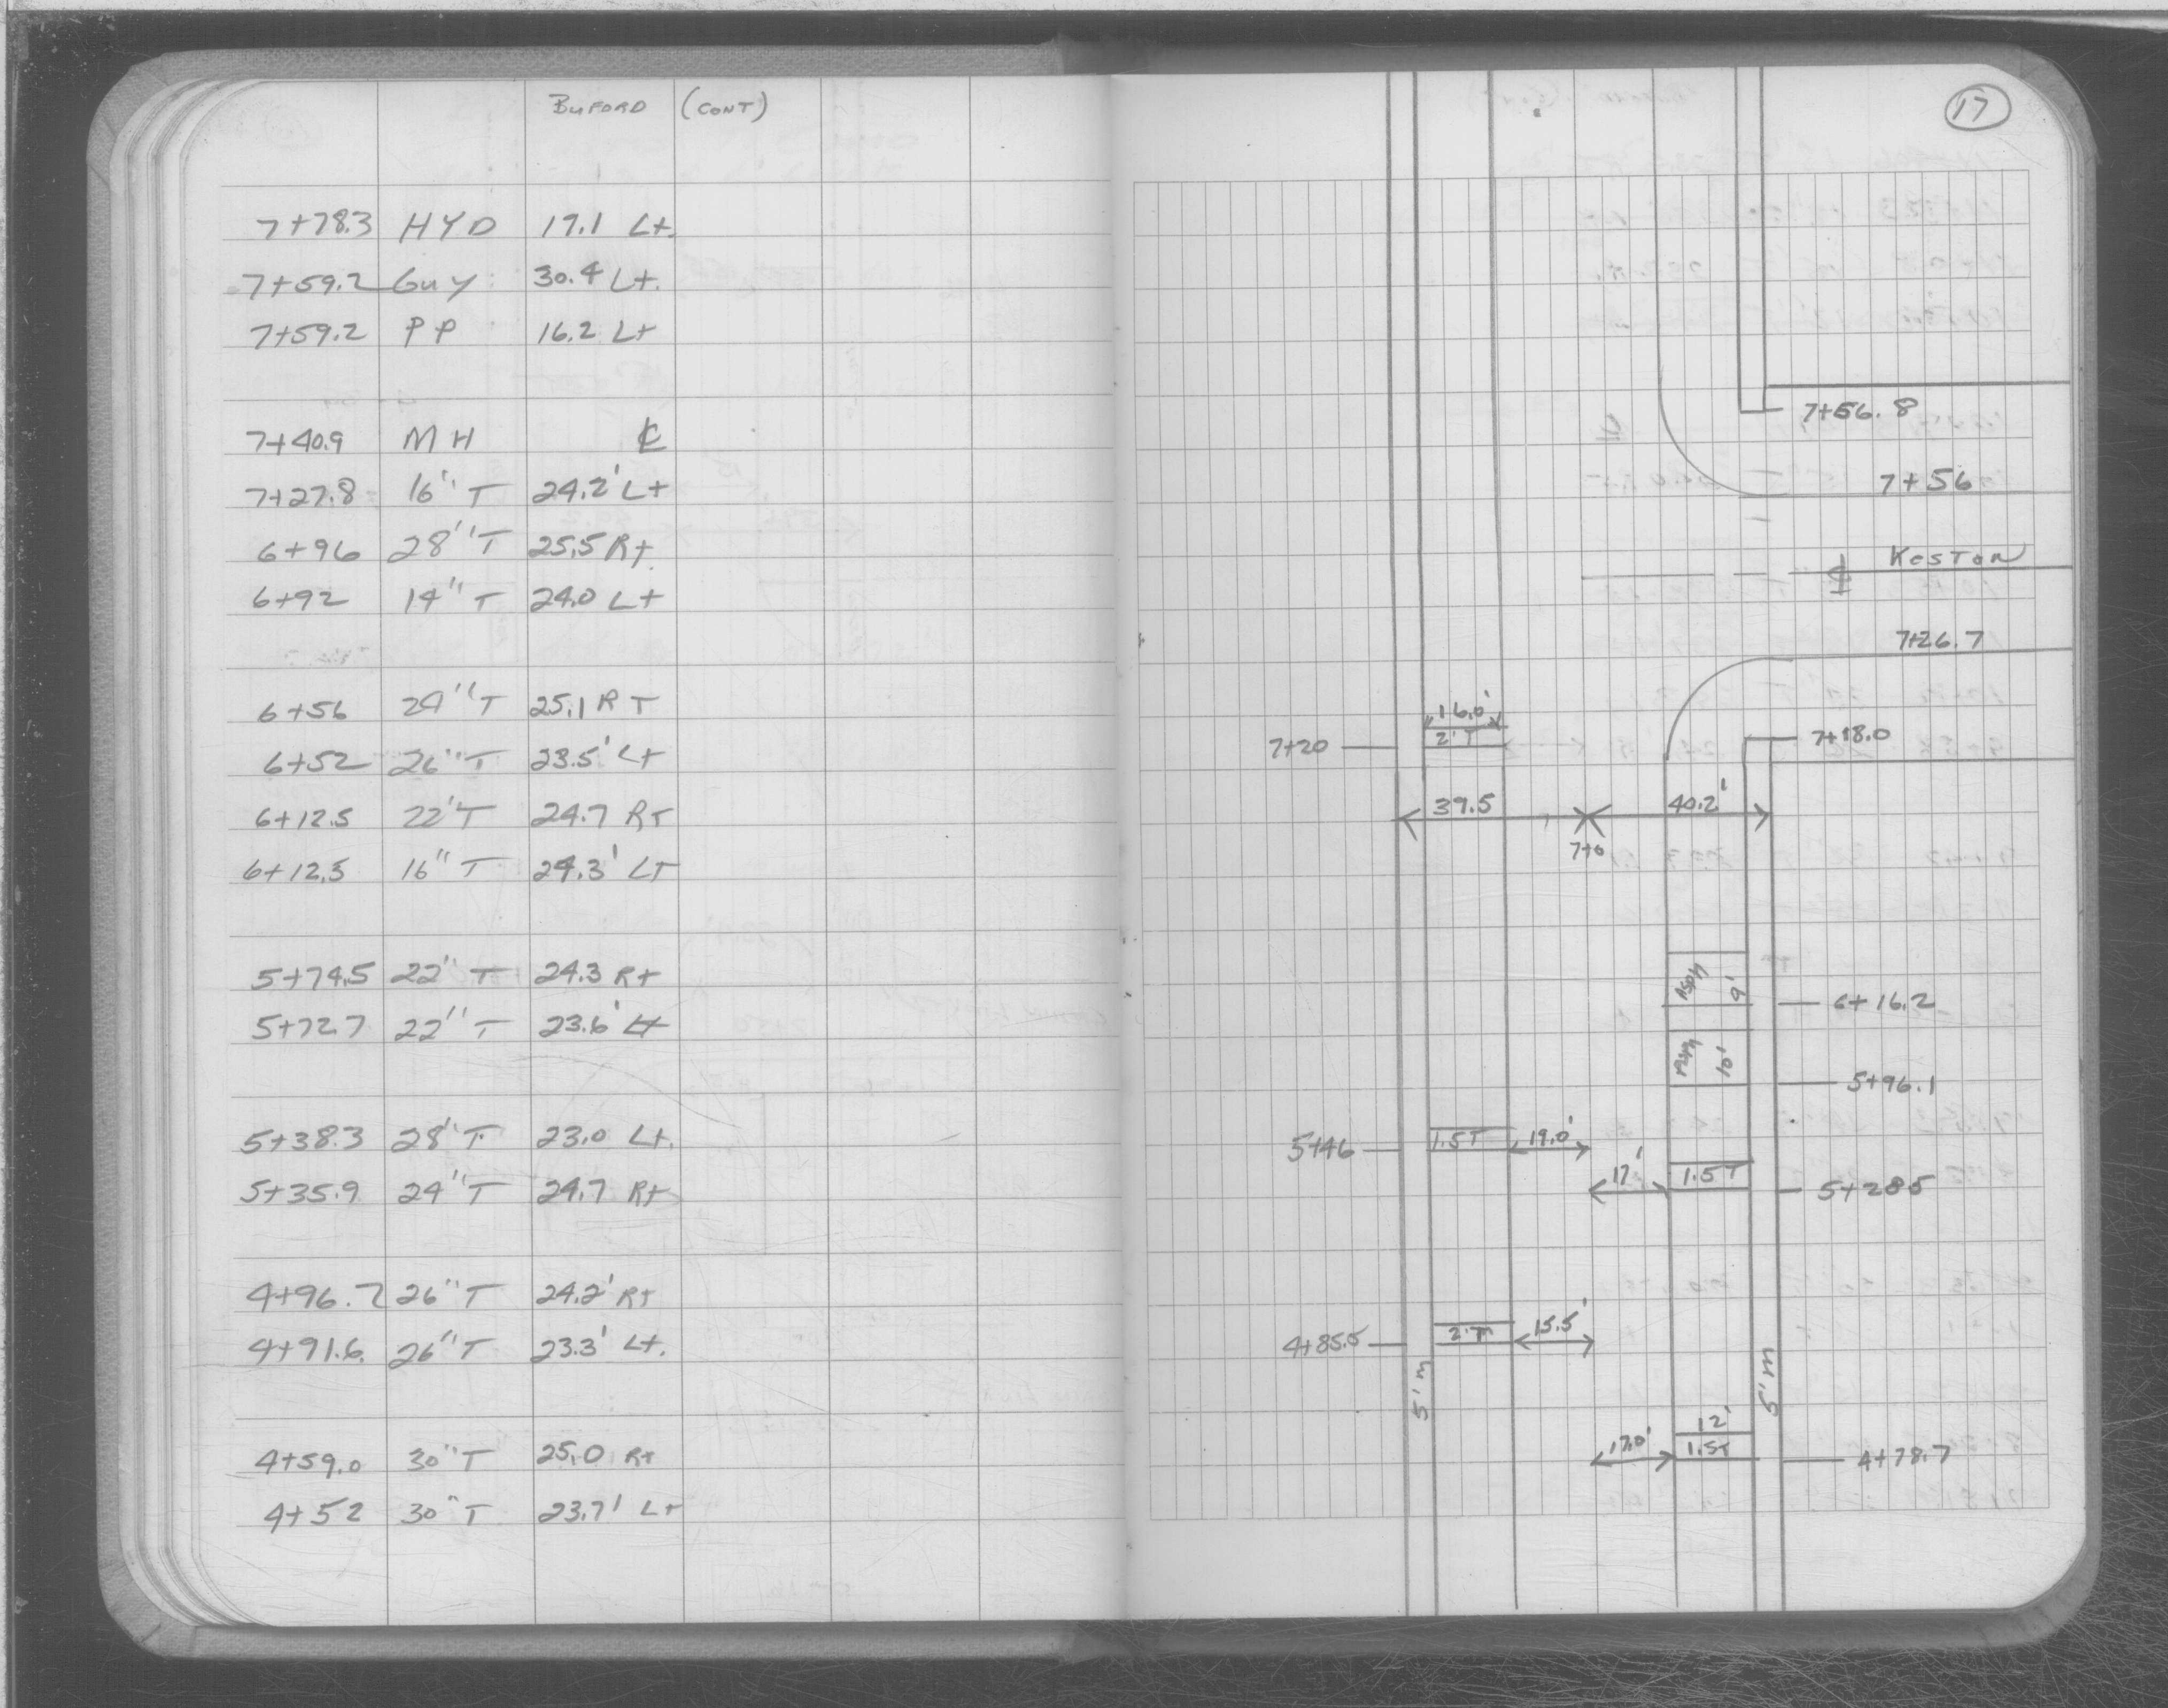 BUFORD (CONT)
7+78.3 HYD 17.1 Lt.
7+59.2 Guy 30.4 Lt.
7+59.2 PP 16.2 Lt
7+40.9 MH ℄
7+27.8 16" T 24.2' Lt
6+96 28" T 25.5 Rt.
6+92 14" T 24.0 Lt
6+56 24" T 25.1 RT
6+52 26" T 23.5' Lt
6+12.5 22' T 24.7 RT
6+12.5 16" T 24.3' LT
5+74.5 22" T 24.3 Rt
5+72.7 22" T 23.6' Lt
5+38.3 28" T 23.0 Lt.
5+35.9 24" T 24.7 Rt
4+96.7 26" T 24.2' Rt
4+91.6 26" T 23.3' Lt.
4+59.0 30" T 25.0 Rt
4+52 30" T 23.7' Lt
17
7+56.8
7+56
℄ KESTON
7+26.7
16.0'
7+20 2' T 7+18.0
39.5 40.2'
7+0
Asph 9' 6+16.2
Asph 10' 5+96.1
5+46 1.5T 19.0'
17' 1.5T 5+28.5
4+85.5 2' T 15.5'
5' m 5' m
12'
17.0' 1.5T 4+78.7